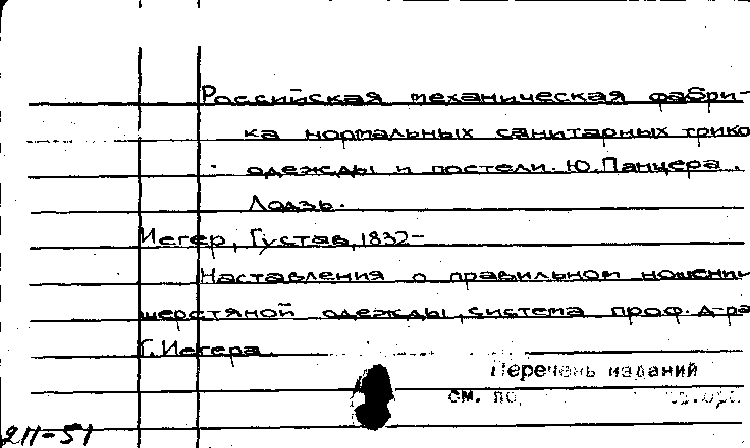 Российская механическая фабри-
ка нормальных санитарных трико
одежды и постели. Ю. Панцера.
Лодзь.
Иегер, Густав, 1832-
Наставления о правильном ношении
шерстяной одежды, система проф. д-ра
Г. Иегера.
Перечень изданий
см. по
211-51